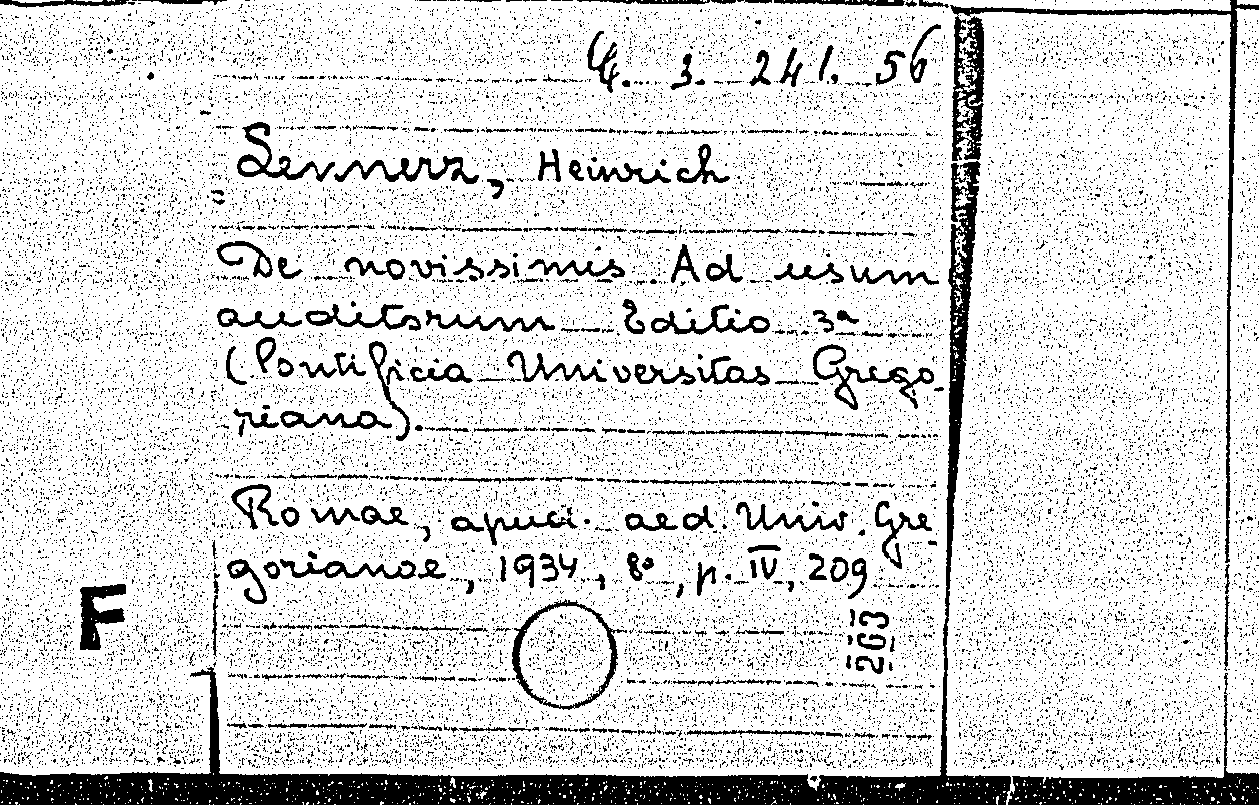 3. 241. 56
Lennerz, Heinrich
De novissimis. Ad usum
auditorum Editio 3ª
(Pontificia Universitas Grego-
riana).
Romae, apud. aed. Univ. Gre-
gorianae, 1934, 8°, p. IV, 209
F
263